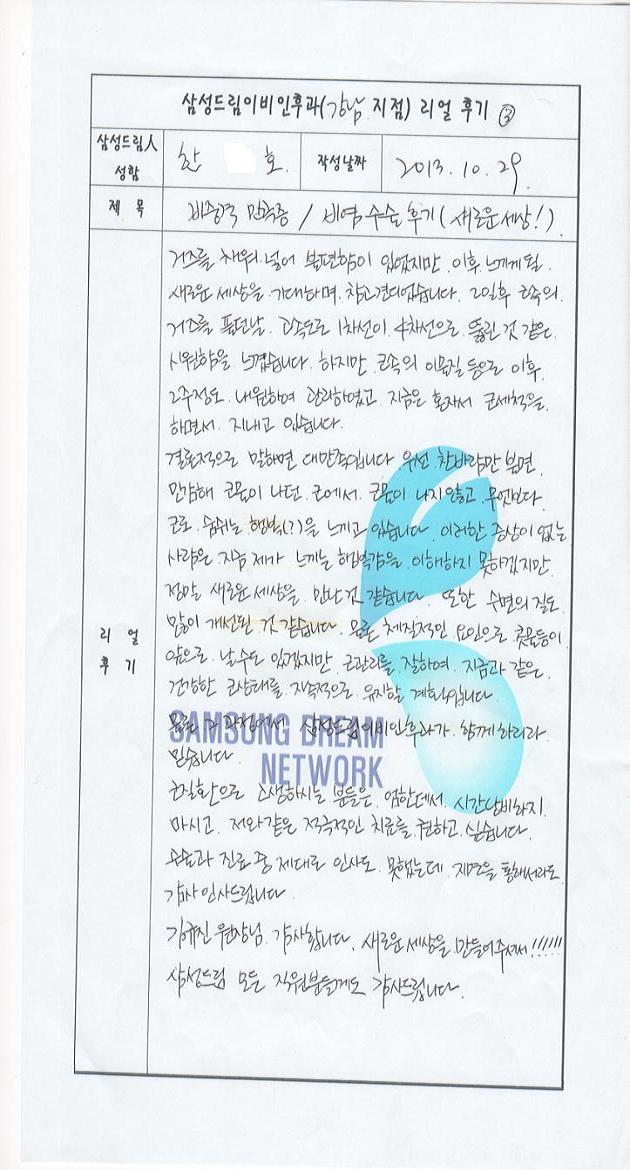 삼성드림이비인후과(강남 지점) 리얼 후기 ③
삼성드림人 성함
한 호.
작성날짜
2013. 10. 29.
제 목
비중격 만곡증 / 비염수술 후기 (새로운세상!)
리 얼 후 기
거즈를 채워 넣어 불편함이 있었지만 이후 느끼게 될
새로운 세상을 기대하며, 참고견디었습니다. 2일후 코속의
거즈를 풀던날. 고속도로 1차선이 4차선으로 뚫린 것 같은
시원함을 느꼈습니다. 하지만 코속의 이물질 등으로 이후
2주정도 내원하여 관리하였고 지금은 혼자서 코세척을
하면서 지내고 있습니다.
결론적으로 말하면 대만족입니다 우선 찬바람만 불면
민감해 콧물이 나던 코에서 콧물이 나지 않고 무엇보다
코로 숨쉬는 행복(?)을 느끼고 있습니다. 이러한 증상이 없는
사람은 지금 제가 느끼는 행복감을 이해하지 못하겠지만
정말 새로운 세상을 만난 것 같습니다. 또한 수면의 질도
많이 개선된 것 같습니다. 물론 체질적인 요인으로 콧물등이
앞으로 날수도 있겠지만 코관리를 잘하여 지금과 같은
건강한 코상태를 지속적으로 유지할 계획입니다.
물론 그 과정에서 삼성드림이비인후과가 함께 하리라
믿습니다.
코질환으로 고생하시는 분들은 엄한데서 시간낭비하지
마시고 저와같은 적극적인 치료를 권하고 싶습니다.
수술과 진료 중 제대로 인사도 못했는데 지면을 통해서라도
감사 인사드립니다.
김규진 원장님. 감사합니다. 새로운 세상을 만들어주셔서!!!!!!
삼성드림 모든 직원분들께도 감사드립니다.
SAMSUNG DREAM
NETWORK